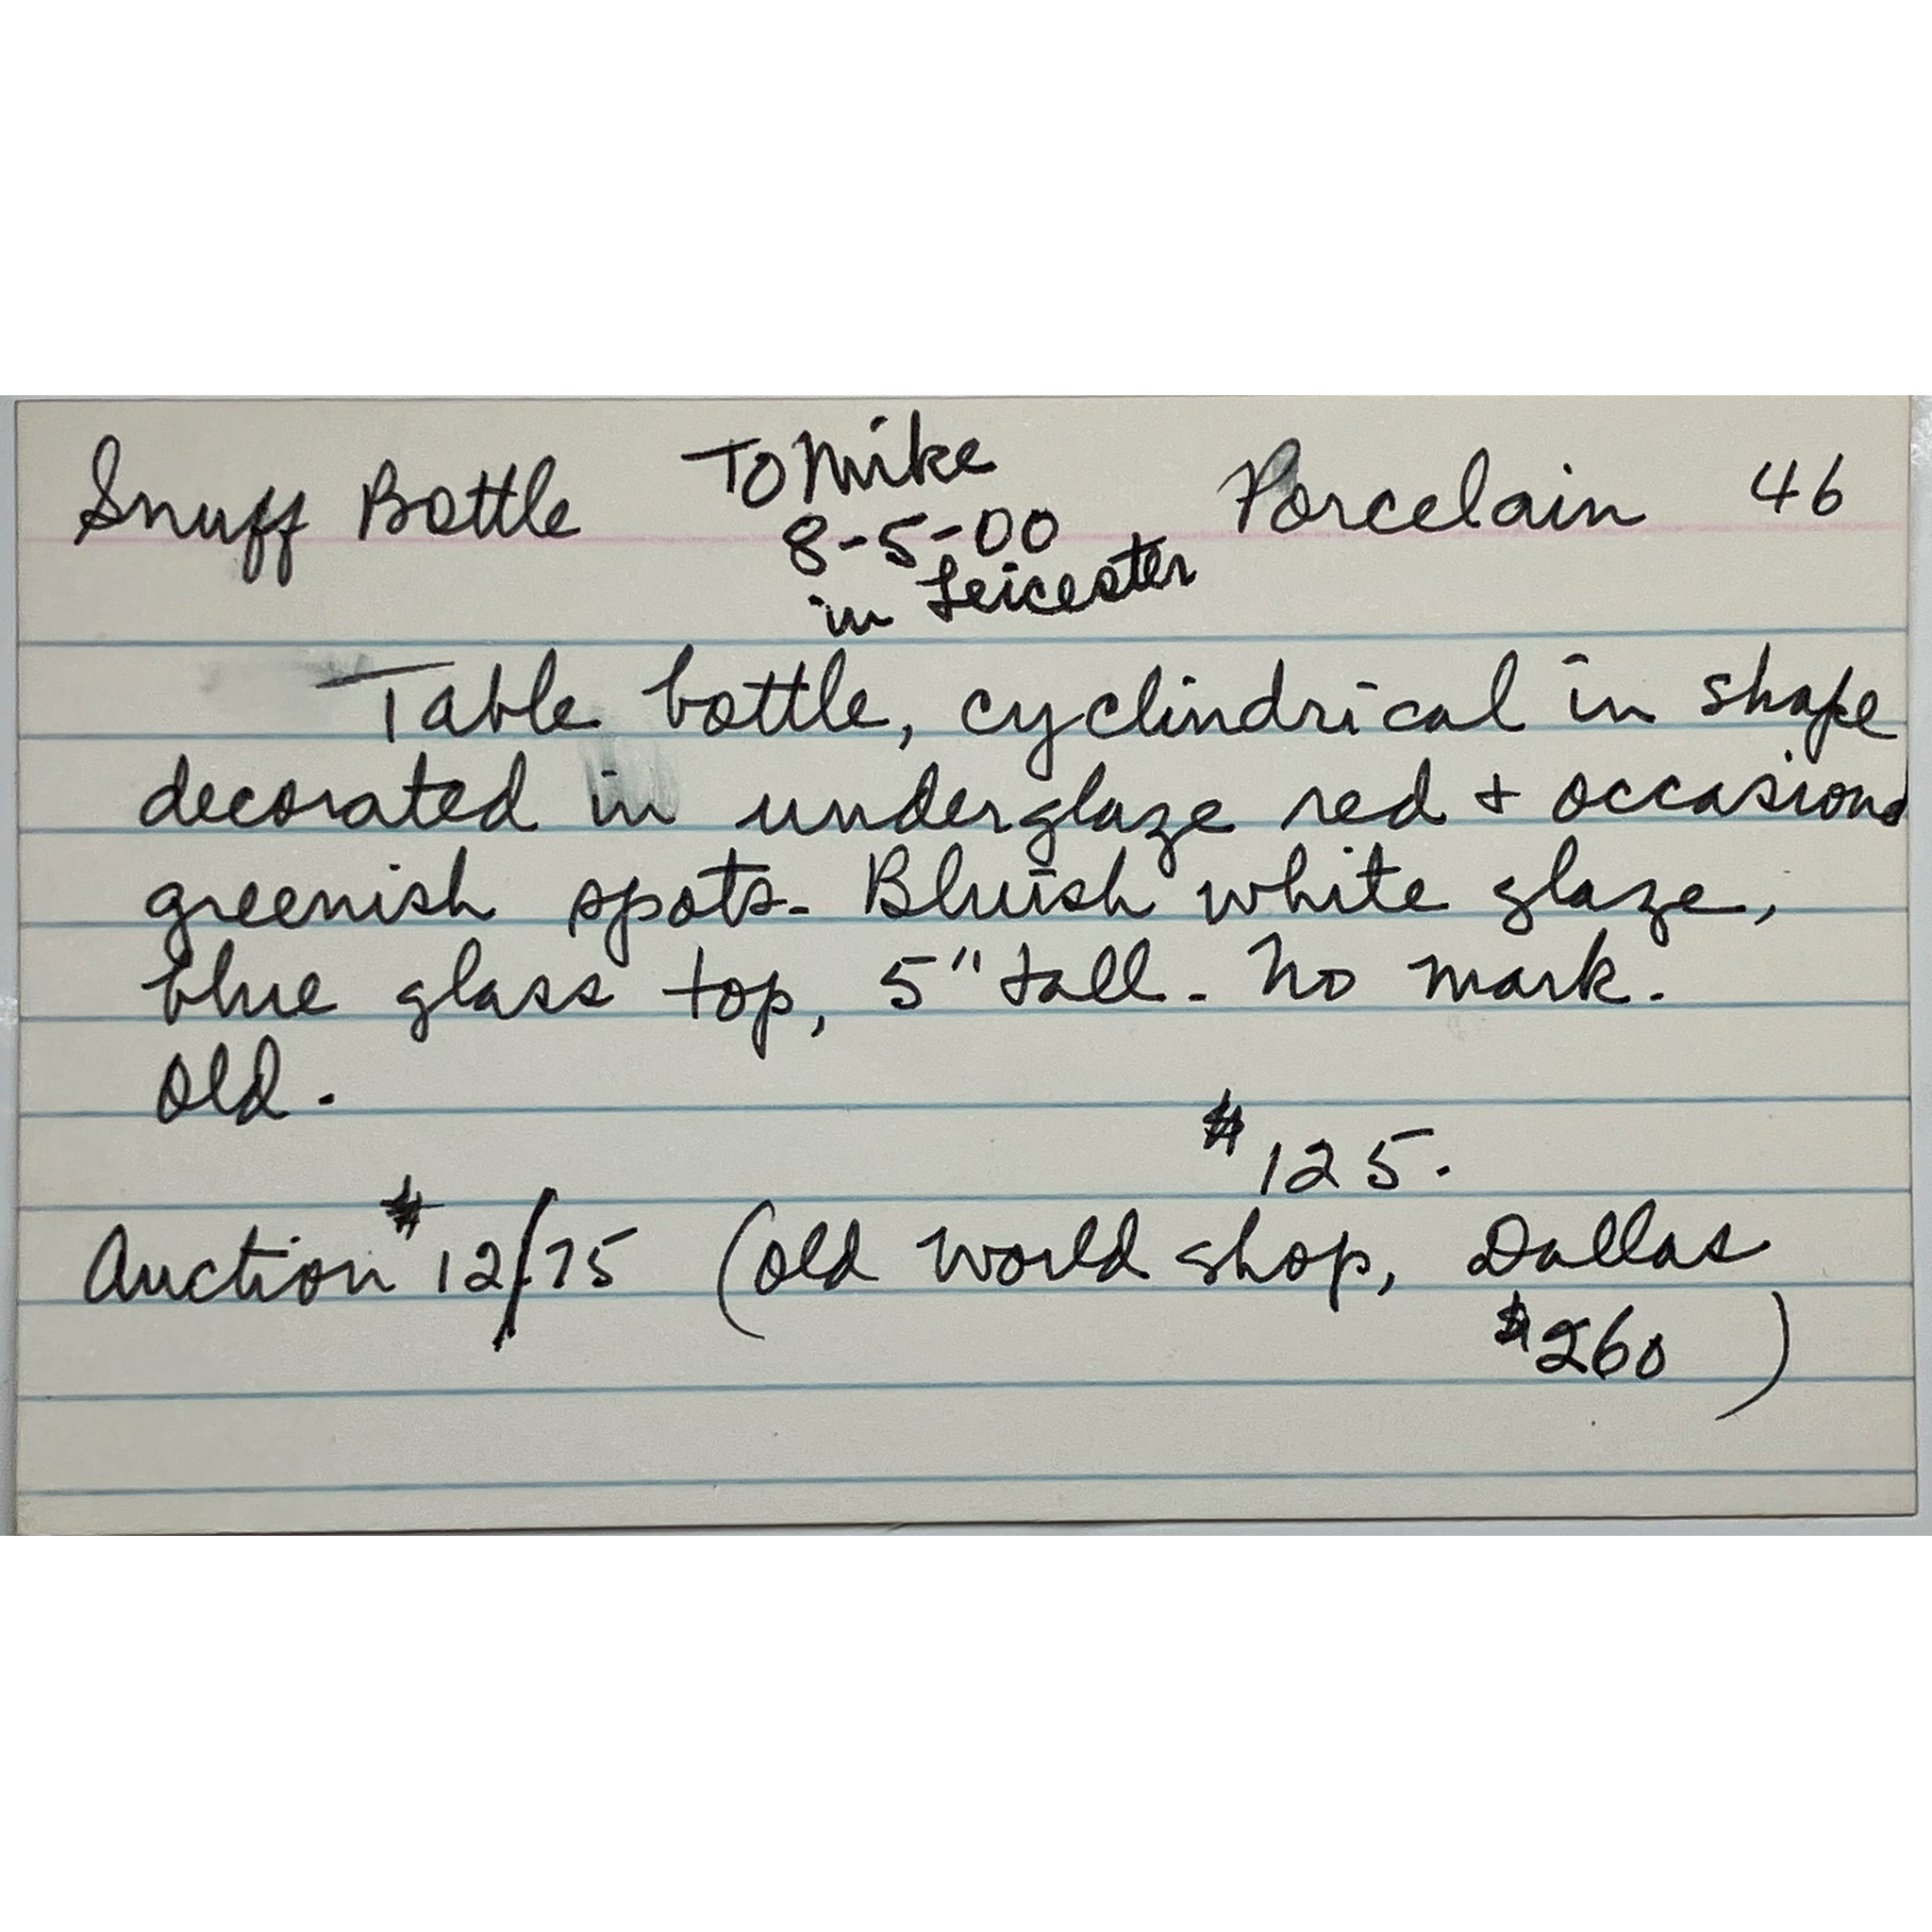 Snuff Bottle To Mike Porcelain 46
8-5-00
in Leicester
Table bottle, cyclindrical in shape
decorated in underglaze red + occasional
greenish spots. Bluish white glaze,
blue glass top, 5" tall. No mark.
Old.
$125.
Auction # 12/75 (Old World Shop, Dallas
$260)